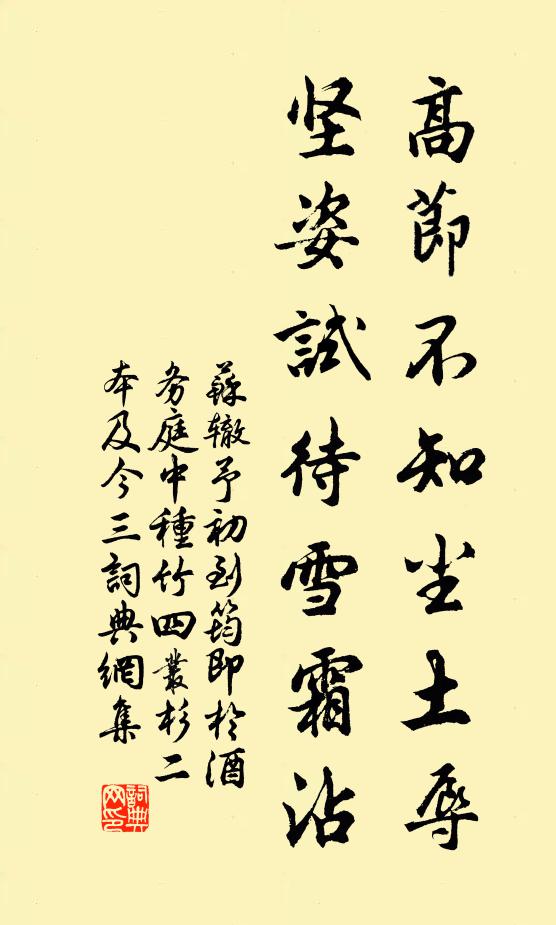 高節不知尘土辱
坚姿試待雪霜沾
蘇辙予初到筠即於酒
务庭中種竹四叢杉二
本及今三詞典網集
詞典
网印